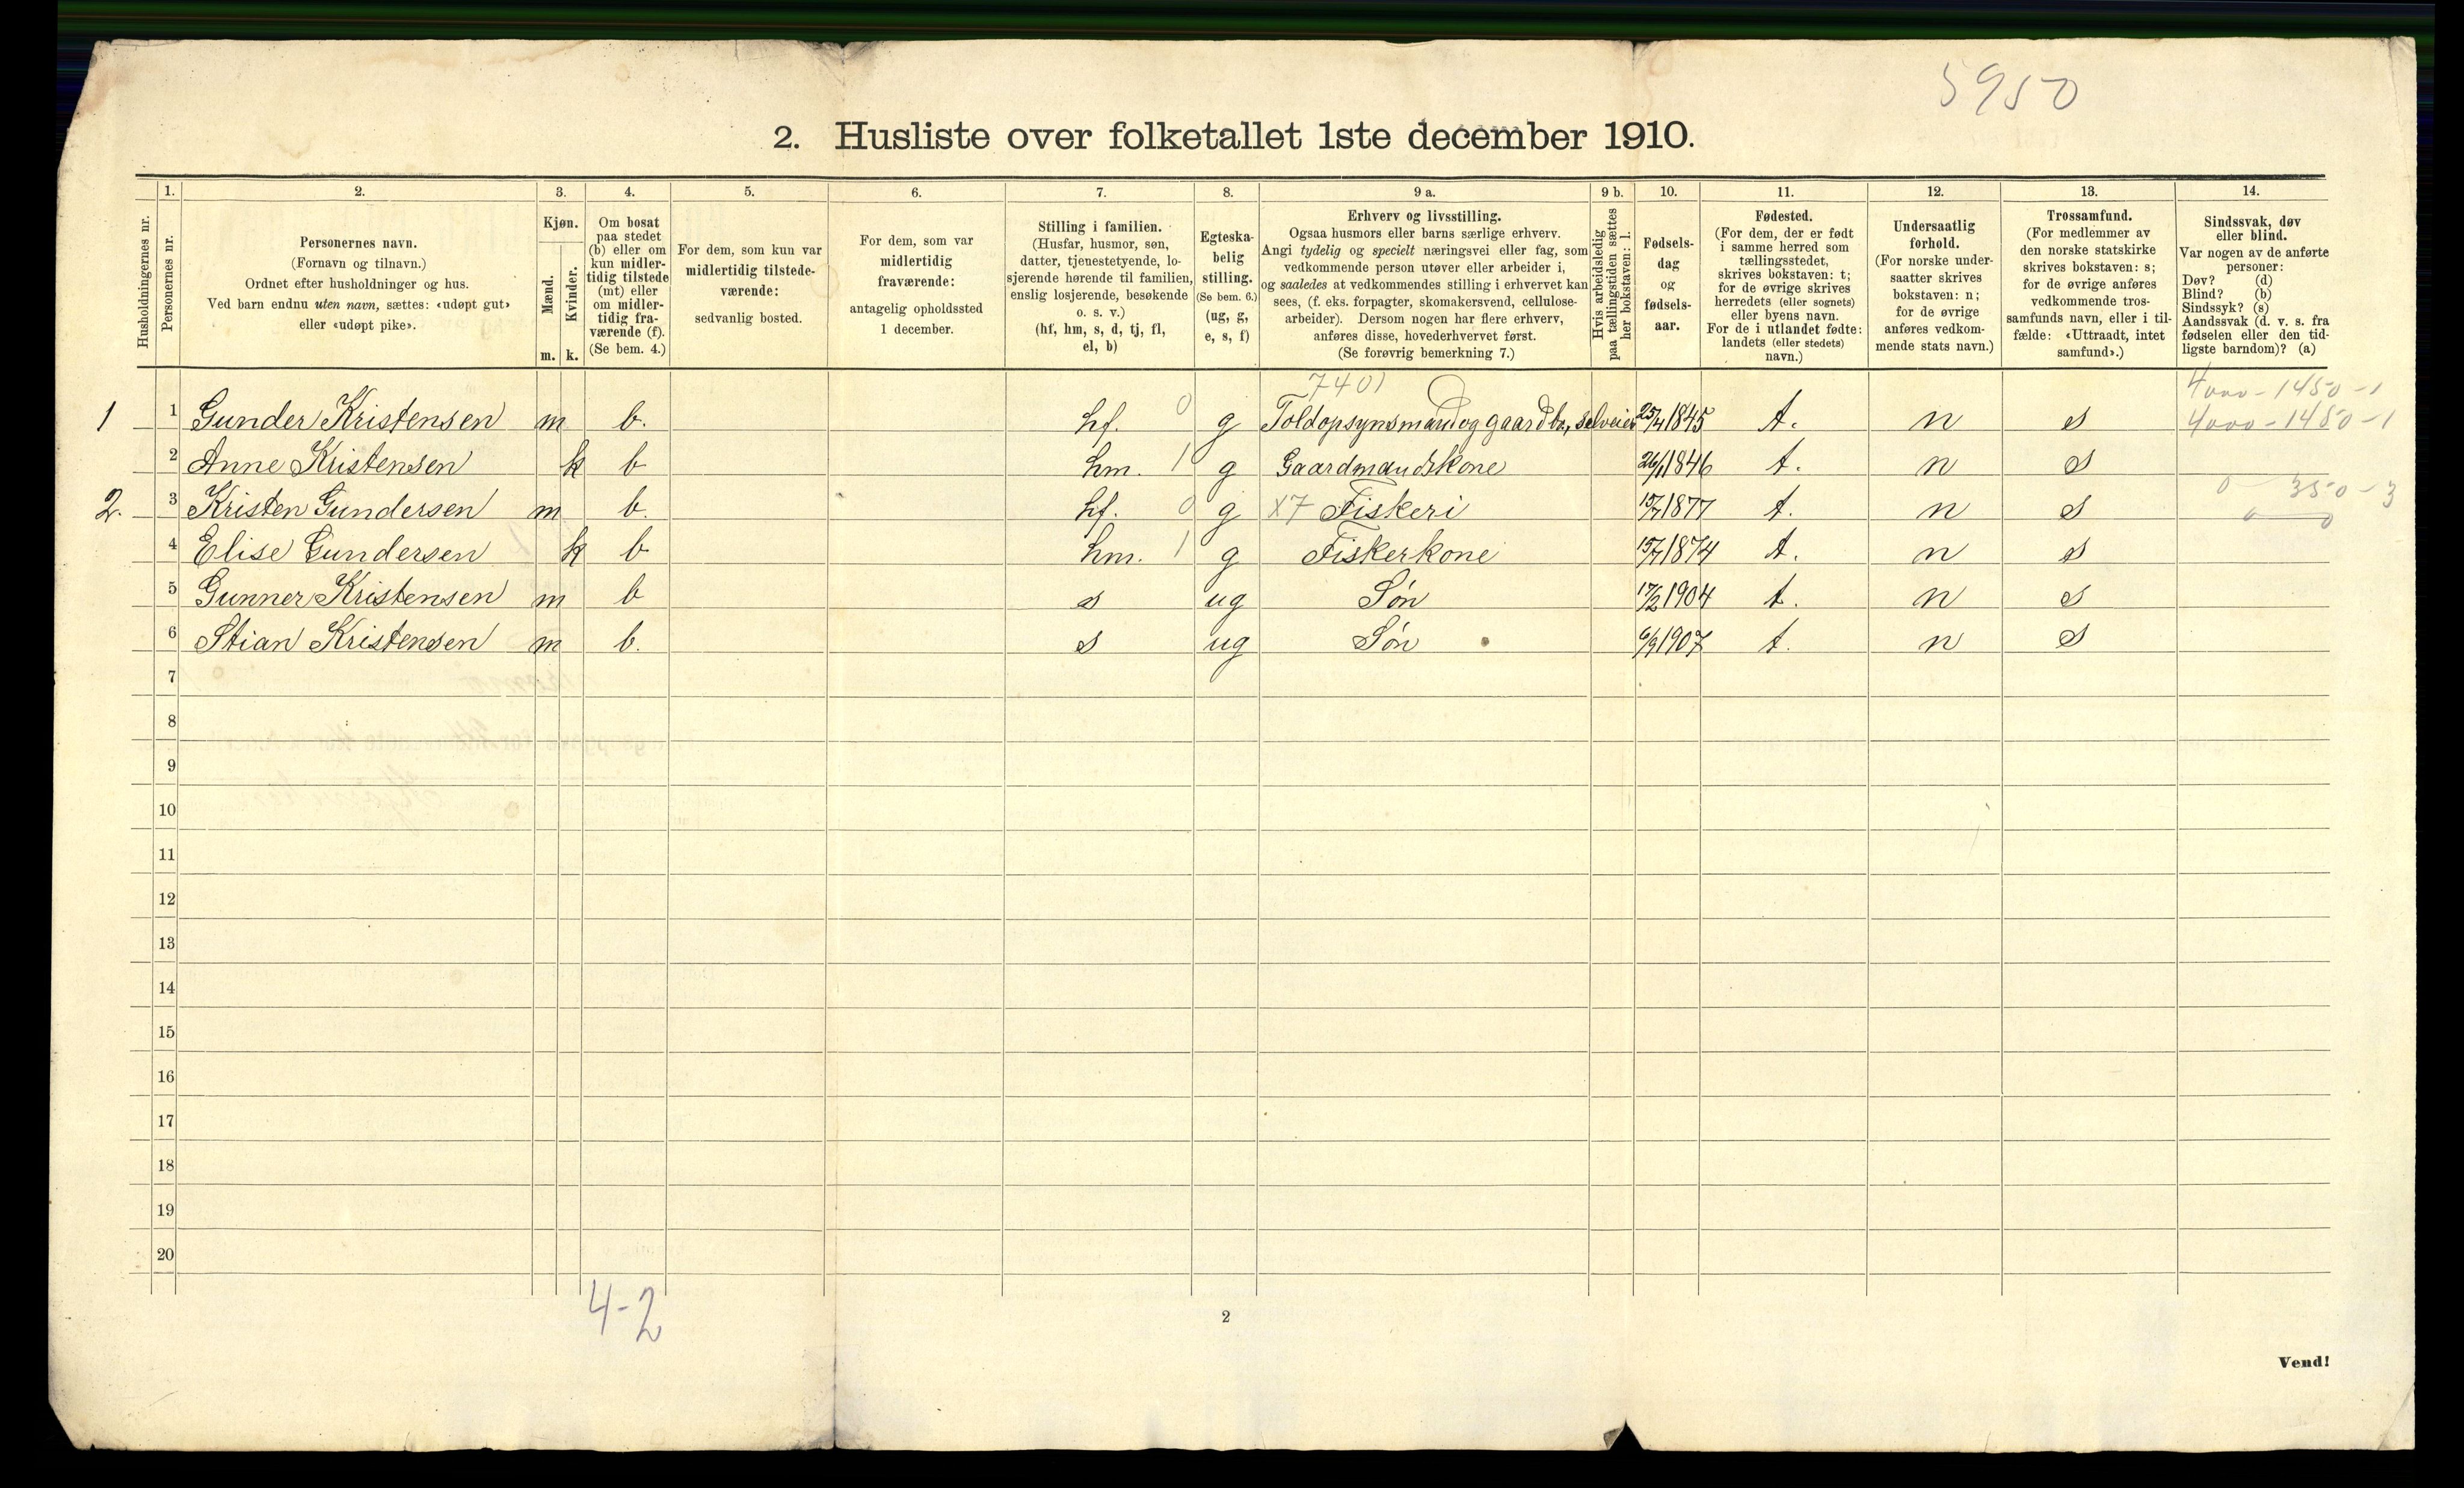 5950
2. Husliste over folketallet 1ste december 1910.
Husholdningernes nr.
1. Personernes nr.
2. Personernes navn.
(Fornavn og tilnavn.)
Ordnet efter husholdninger og hus.
Ved barn endnu uten navn, sættes: «udøpt gut»
eller «udøpt pike».
3. Kjøn.
Mænd. m.
Kvinder. k.
4. Om bosat
paa stedet
(b) eller om
kun midler-
tidig tilstede
(mt) eller
om midler-
tidig fra-
værende (f).
(Se bem. 4.)
5. For dem, som kun var
midlertidig tilstede-
værende:
sedvanlig bosted.
6. For dem, som var
midlertidig
fraværende:
antagelig opholdssted
1 december.
7. Stilling i familien.
(Husfar, husmor, søn,
datter, tjenestetyende, lo-
sjerende hørende til familien,
enslig losjerende, besøkende
o. s. v.)
(hf, hm, s, d, tj, fl,
el, b)
8. Egteska-
belig
stilling.
(Se bem. 6.)
(ug, g,
e, s, f)
9 a. Erhverv og livsstilling.
Ogsaa husmors eller barns særlige erhverv.
Angi tydelig og specielt næringsvei eller fag, som
vedkommende person utøver eller arbeider i,
og saaledes at vedkommendes stilling i erhvervet kan
sees, (f. eks. forpagter, skomakersvend, cellulose-
arbeider). Dersom nogen har flere erhverv,
anføres disse, hovederhvervet først.
(Se forøvrig bemerkning 7.)
9 b. Hvis arbeidsledig
paa tællingstiden sættes
her bokstaven: l.
10. Fødsels-
dag
og
fødsels-
aar.
11. Fødested.
(For dem, der er født
i samme herred som
tællingsstedet,
skrives bokstaven: t;
for de øvrige skrives
herredets (eller sognets)
eller byens navn.
For de i utlandet fødte:
landets (eller stedets)
navn.)
12. Undersaatlig
forhold.
(For norske under-
saatter skrives
bokstaven: n;
for de øvrige
anføres vedkom-
mende stats navn.)
13. Trossamfund.
(For medlemmer av
den norske statskirke
skrives bokstaven: s;
for de øvrige anføres
vedkommende tros-
samfunds navn, eller i til-
fælde: «Uttraadt, intet
samfund».)
14. Sindssvak, døv
eller blind.
Var nogen av de anførte
personer:
Døv? (d)
Blind? (b)
Sindssyk? (s)
Aandssvak (d. v. s. fra
fødselen eller den tid-
ligste barndom)? (a)
7401 4000-1450-1
1 1 Gunder Kristensen m b. hf. 0 g Toldopsynsmand og gaardbr, selveier 25/4 1845 t. n s 4000-1450-1
2 Anne Kristensen k b hm. 1 g Gaardmandskone 1846 t. n s
2. 3 Kristen Gundersen m b. hf. 0 g x7 Fiskeri 15/7 1877 t. n s 0 350-3
4 Elise Gundersen k b hm. 1 g Fiskerkone 15/7 1874 t. n s
5 Gunner Kristensen m b s ug Søn 17/2 1904 t. n s
6 Stian Kristensen m b. s ug Søn 6/9 1907 t. n s
7
8
9
10
11
12
13
14
15
16
17
18
19
20
4-2
2
Vend!